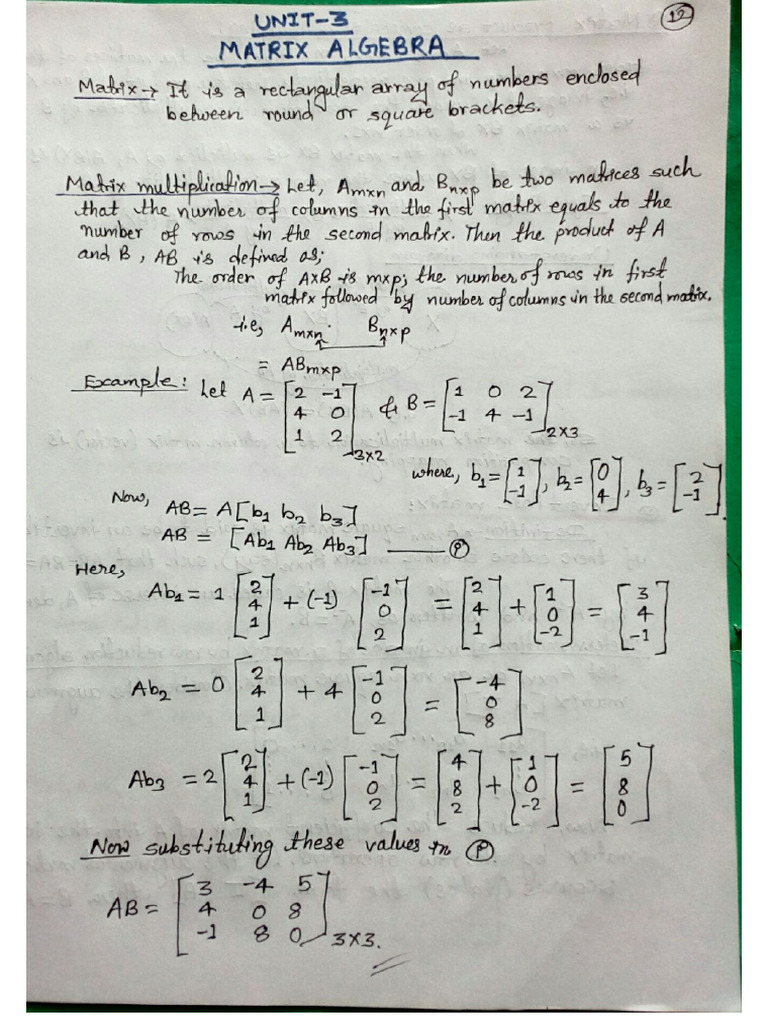 UNIT-3
12
MATRIX ALGEBRA
Matrix → It is a rectangular array of numbers enclosed
between round or square brackets.
Matrix multiplication → Let, Amxn and Bnxp be two matrices such
that the number of columns in the first matrix equals to the
number of rows in the second matrix. Then the product of A
and B, AB is defined as;
The order of AxB is mxp; the number of rows in first
matrix followed by number of columns in the second matrix.
i.e, Amxn . Bnxp
= ABmxp
Example: Let A = [2 -1; 4 0; 1 2]3x2 & B = [1 0 2; -1 4 -1]2x3
where, b1 = [1; -1], b2 = [0; 4], b3 = [2; -1].
Now, AB = A[b1 b2 b3]
AB = [Ab1 Ab2 Ab3] —— (P)
Here,
Ab1 = 1 [2; 4; 1] + (-1) [-1; 0; 2] = [2; 4; 1] + [1; 0; -2] = [3; 4; -1]
Ab2 = 0 [2; 4; 1] + 4 [-1; 0; 2] = [-4; 0; 8]
Ab3 = 2 [2; 4; 1] + (-1) [-1; 0; 2] = [4; 8; 2] + [1; 0; -2] = [5; 8; 0]
Now substituting these values in (P)
AB = [3 -4 5; 4 0 8; -1 8 0]3x3.